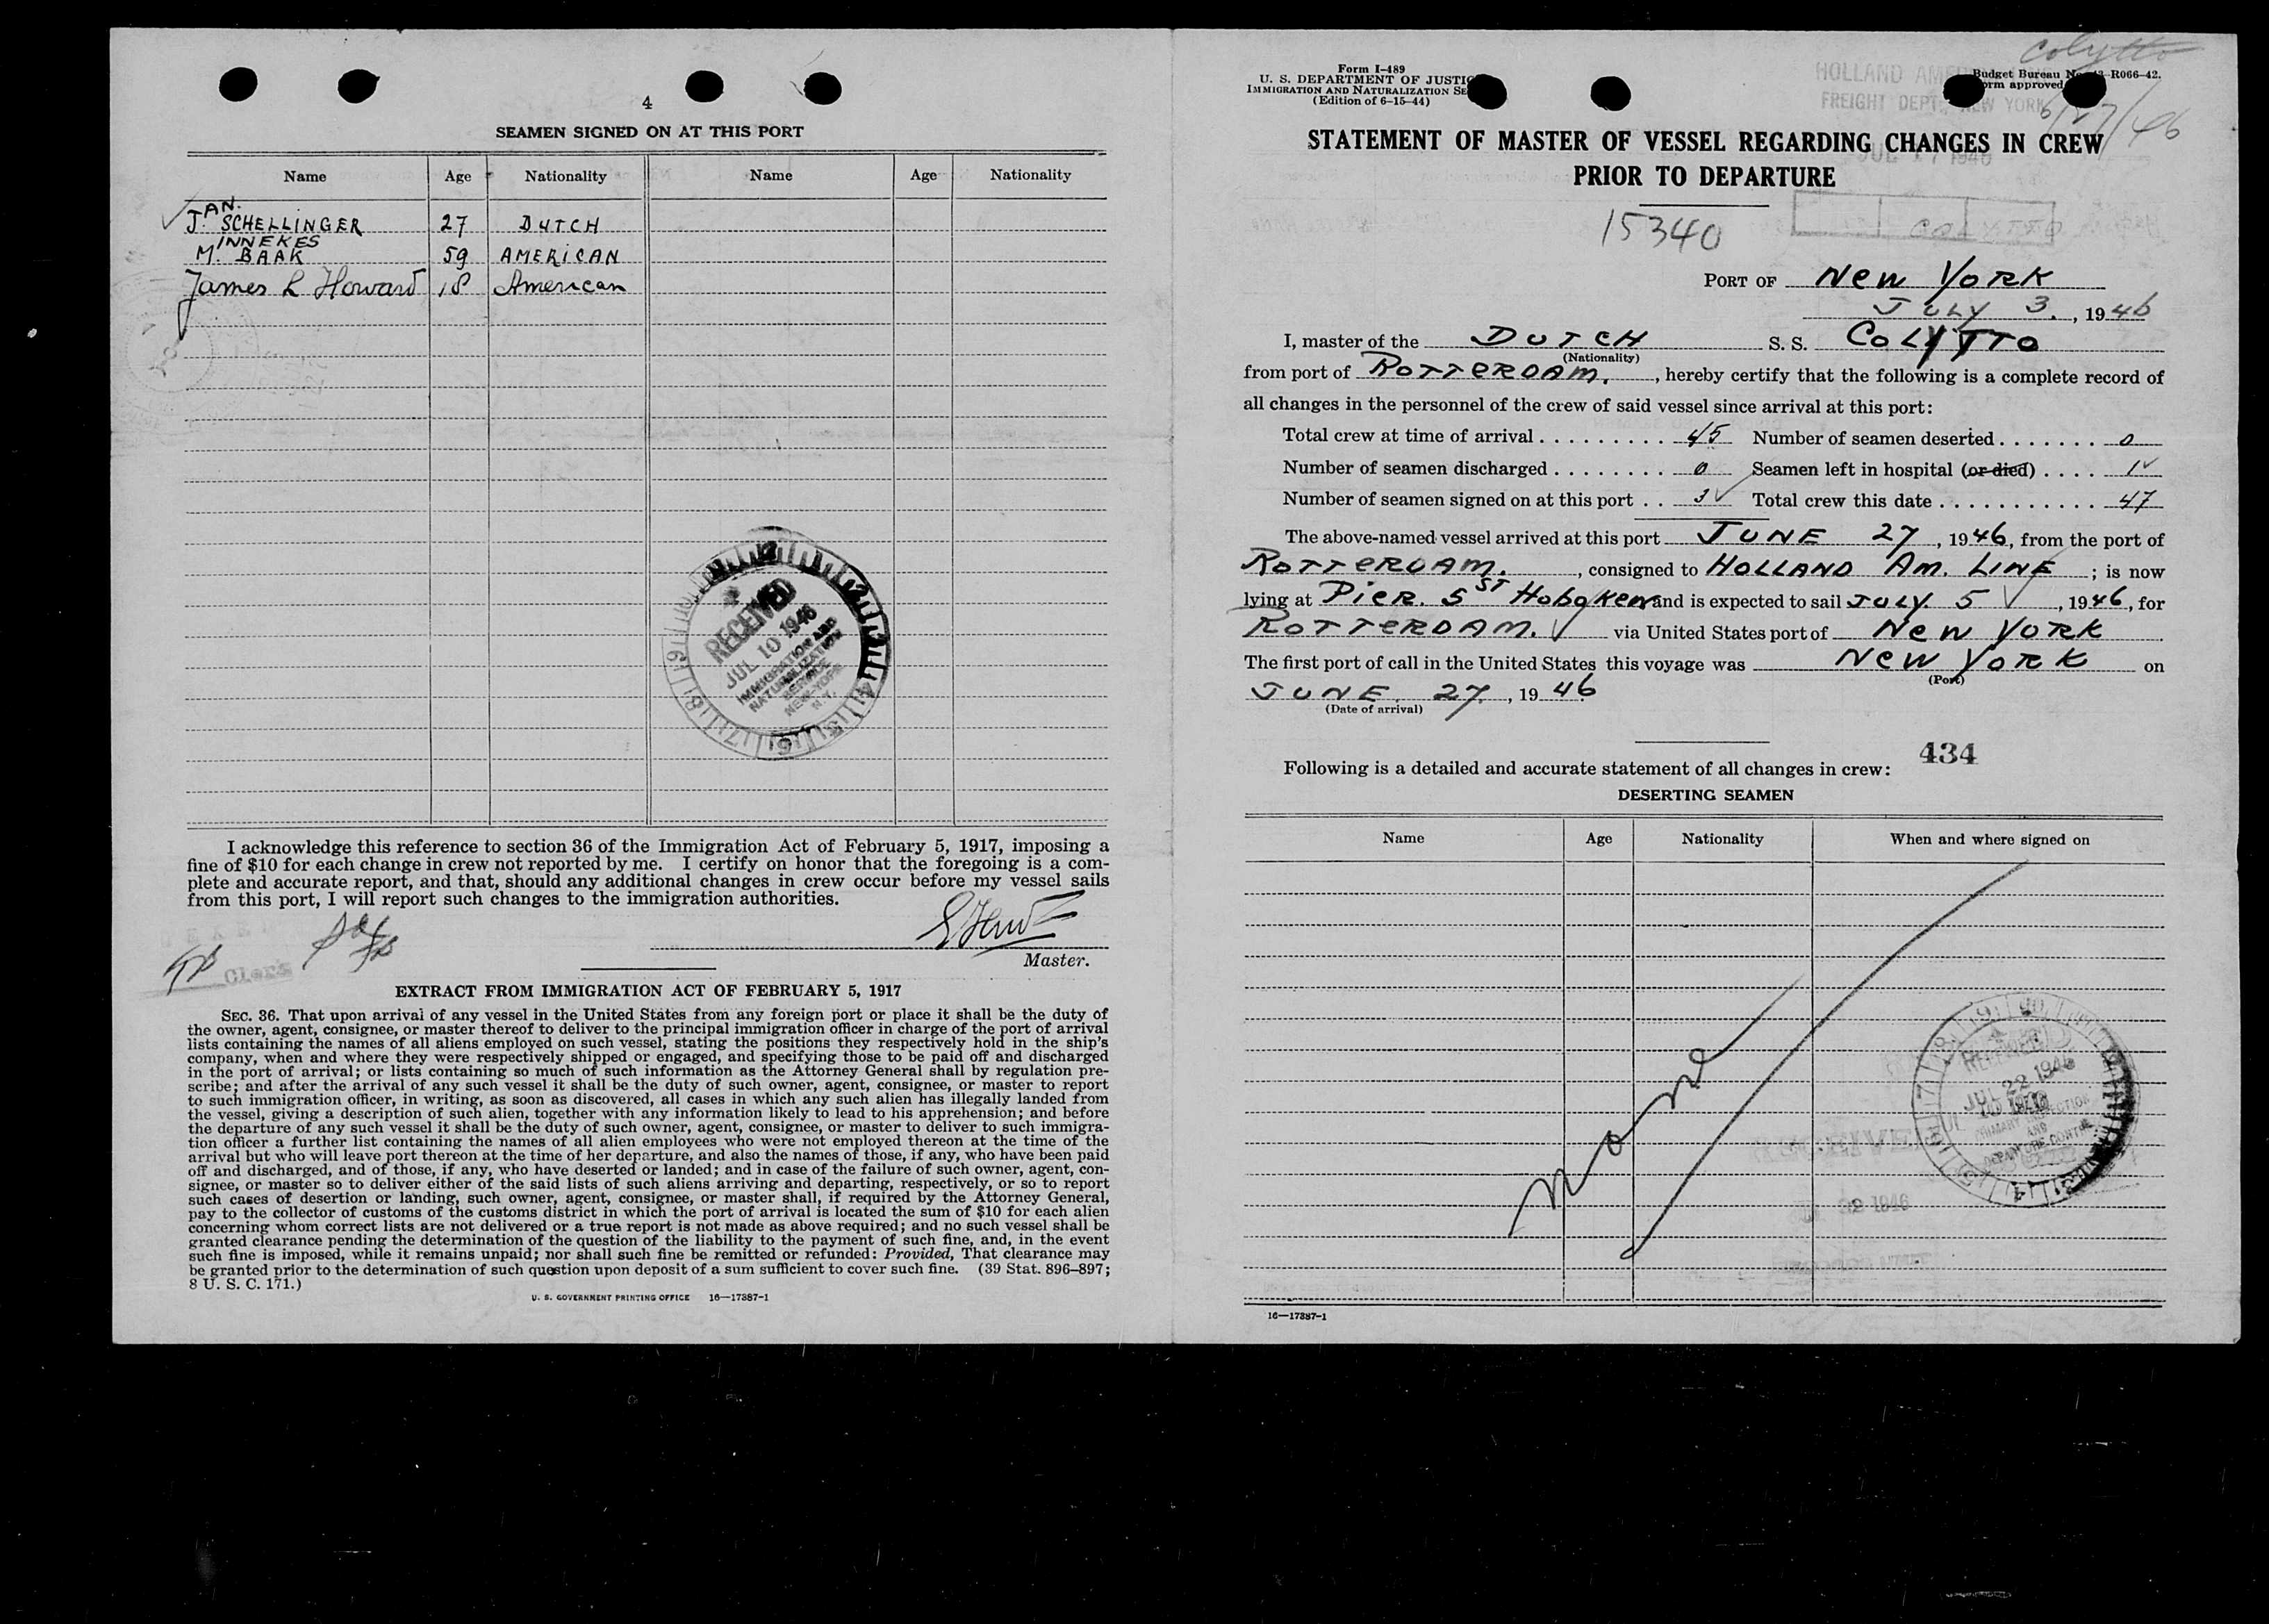 4
SEAMEN SIGNED ON AT THIS PORT
Name Age Nationality Name Age Nationality
JAN. SCHELLINGER 27 DUTCH
MINNEKES
M. BAAK 59 AMERICAN
James L Howard 18 American
RECEIVED
JUL 10 1946
IMMIGRATION AND
NATURALIZATION
SERVICE
NEW YORK
N. Y.
I acknowledge this reference to section 36 of the Immigration Act of February 5, 1917, imposing a
fine of $10 for each change in crew not reported by me. I certify on honor that the foregoing is a com-
plete and accurate report, and that, should any additional changes in crew occur before my vessel sails
from this port, I will report such changes to the immigration authorities.
Clerk
Master.
EXTRACT FROM IMMIGRATION ACT OF FEBRUARY 5, 1917
SEC. 36. That upon arrival of any vessel in the United States from any foreign port or place it shall be the duty of
the owner, agent, consignee, or master thereof to deliver to the principal immigration officer in charge of the port of arrival
lists containing the names of all aliens employed on such vessel, stating the positions they respectively hold in the ship's
company, when and where they were respectively shipped or engaged, and specifying those to be paid off and discharged
in the port of arrival; or lists containing so much of such information as the Attorney General shall by regulation pre-
scribe; and after the arrival of any such vessel it shall be the duty of such owner, agent, consignee, or master to report
to such immigration officer, in writing, as soon as discovered, all cases in which any such alien has illegally landed from
the vessel, giving a description of such alien, together with any information likely to lead to his apprehension; and before
the departure of any such vessel it shall be the duty of such owner, agent, consignee, or master to deliver to such immigra-
tion officer a further list containing the names of all alien employees who were not employed thereon at the time of the
arrival but who will leave port thereon at the time of her departure, and also the names of those, if any, who have been paid
off and discharged, and of those, if any, who have deserted or landed; and in case of the failure of such owner, agent, con-
signee, or master so to deliver either of the said lists of such aliens arriving and departing, respectively, or so to report
such cases of desertion or landing, such owner, agent, consignee, or master shall, if required by the Attorney General,
pay to the collector of customs of the customs district in which the port of arrival is located the sum of $10 for each alien
concerning whom correct lists are not delivered or a true report is not made as above required; and no such vessel shall be
granted clearance pending the determination of the question of the liability to the payment of such fine, and, in the event
such fine is imposed, while it remains unpaid; nor shall such fine be remitted or refunded: Provided, That clearance may
be granted prior to the determination of such question upon deposit of a sum sufficient to cover such fine. (39 Stat. 896–897;
8 U. S. C. 171.)
U. S. GOVERNMENT PRINTING OFFICE 16—17387-1
Colytto
Form I-489
U. S. DEPARTMENT OF JUSTIC
IMMIGRATION AND NATURALIZATION SE
(Edition of 6-15-44)
HOLLAND AM
FREIGHT DEPT. NEW YORK
Budget Bureau No. R066-42.
orm approved
6/27/46
STATEMENT OF MASTER OF VESSEL REGARDING CHANGES IN CREW
PRIOR TO DEPARTURE
15340
COLYTTO
PORT OF NEW YORK
JULY 3., 1946
I, master of the DUTCH S. S. COLYTTO
(Nationality)
from port of ROTTERDAM., hereby certify that the following is a complete record of
all changes in the personnel of the crew of said vessel since arrival at this port:
Total crew at time of arrival . . . . . . . . . 45 Number of seamen deserted . . . . . . . 0
Number of seamen discharged . . . . . . . . 0 Seamen left in hospital (or died) . . . . 1
Number of seamen signed on at this port . . 3 Total crew this date . . . . . . . . . . . 47
The above-named vessel arrived at this port JUNE 27, 1946, from the port of
ROTTERDAM., consigned to HOLLAND AM. LINE; is now
lying at PIER. 5 ST HOBOKEN and is expected to sail JULY. 5, 1946, for
ROTTERDAM. via United States port of NEW YORK
The first port of call in the United States this voyage was NEW YORK on
(Port)
JUNE. 27, 1946.
(Date of arrival)
434
Following is a detailed and accurate statement of all changes in crew:
DESERTING SEAMEN
Name Age Nationality When and where signed on
None
RECEIVED
JUL 22 1946
PRIMARY INSPECTION
AND
DEPARTURE CONTROL
16—17387-1